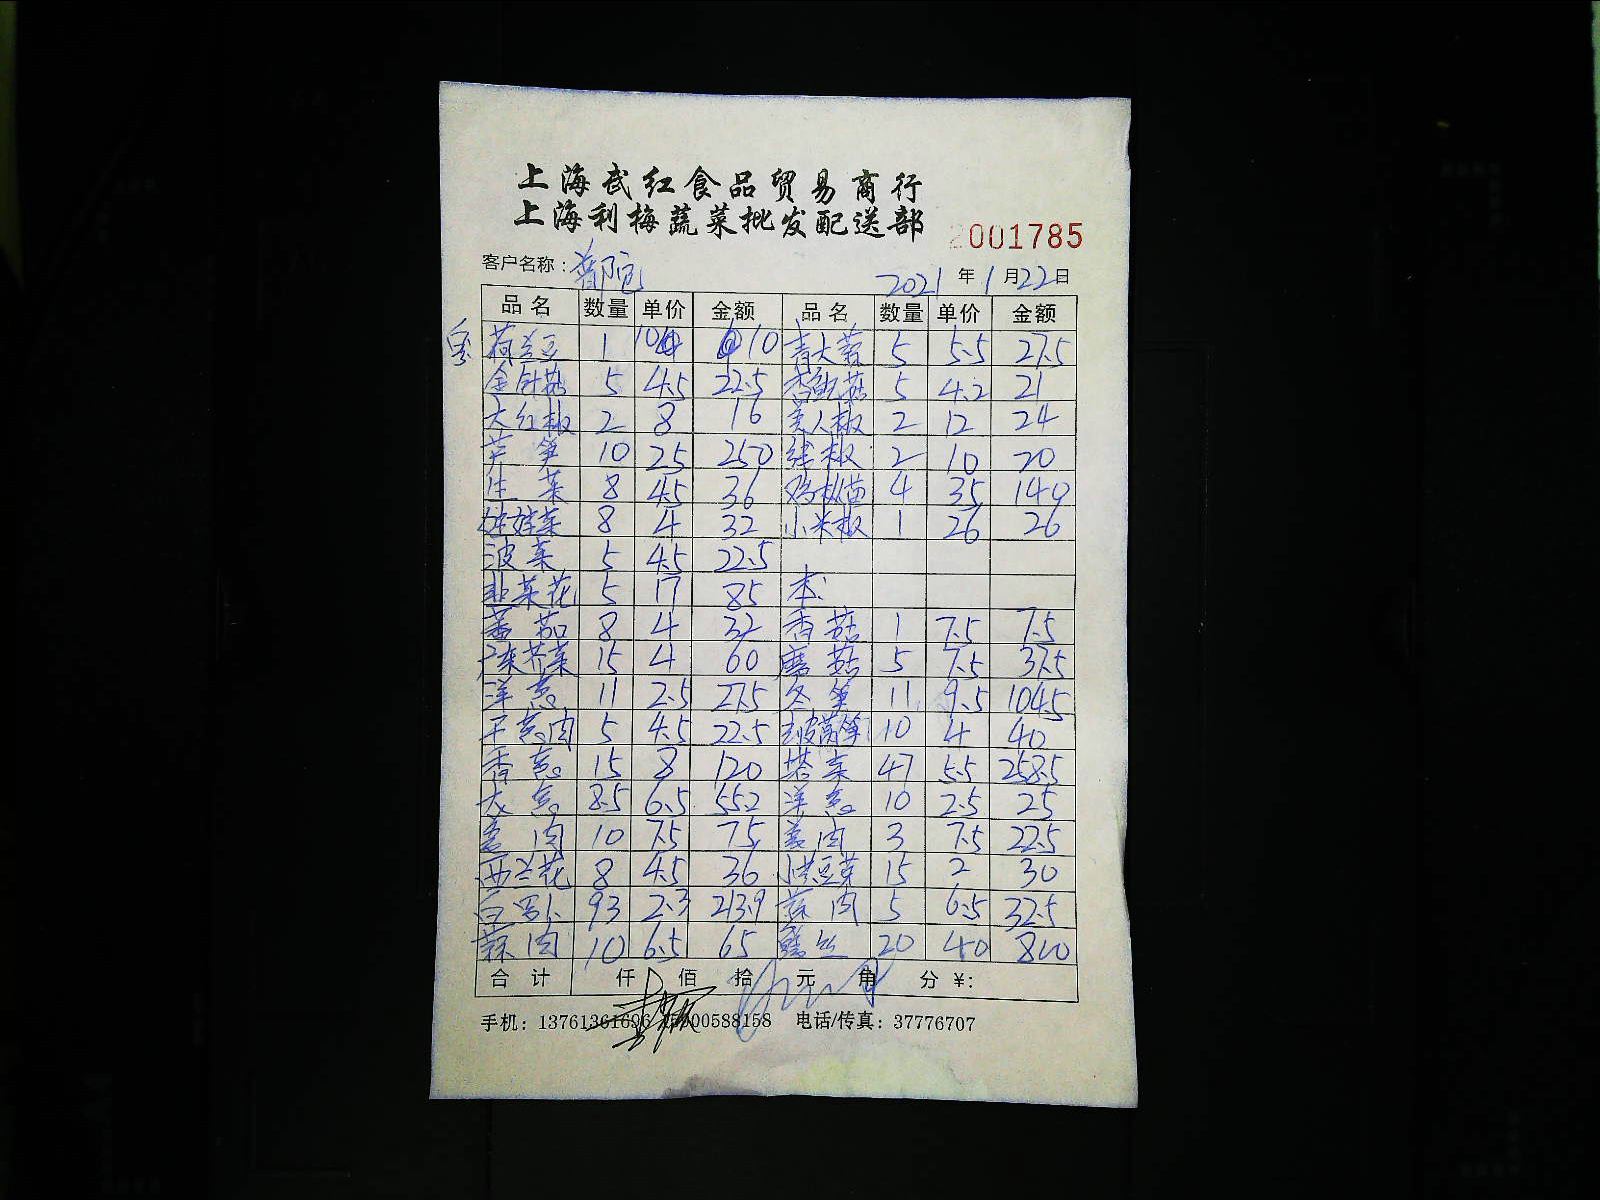 上海武红食品贸易商行
上海利梅蔬菜批发配送部
2001785
客户名称：普陀
2021年1月22日
品名 数量 单价 金额 品名 数量 单价 金额
荷兰豆 1 10 10 青大蒜 5 5.5 27.5
金针菇 5 4.5 22.5 杏鲍菇 5 4.2 21
大红椒 2 8 16 美人椒 2 12 24
芦笋 10 25 250 线椒 2 10 20
生菜 8 4.5 36 鸡枞菌 4 35 140
娃娃菜 8 4 32 小米椒 1 26 26
波菜 5 4.5 22.5
韭菜花 5 17 85 本:
蕃茄 8 4 32 香菇 1 7.5 7.5
广东芥菜 15 4 60 磨菇 5 7.5 37.5
洋葱 11 2.5 27.5 冬笋 11 9.5 104.5
干葱肉 5 4.5 22.5 去皮莴笋 10 4 40
香葱 15 8 120 塔菜 47 5.5 258.5
大葱 8.5 6.5 552 洋葱 10 2.5 25
姜肉 10 7.5 75 姜肉 3 7.5 22.5
西兰花 8 4.5 36 小黄豆芽 15 2 30
白罗卜 93 2.3 213.9 蒜肉 5 6.5 32.5
蒜肉 10 6.5 65 丝 20 40 800
合计 仟 佰 拾 元 角 分 ¥:
手机：13761361696 15900588158 电话/传真：37776707